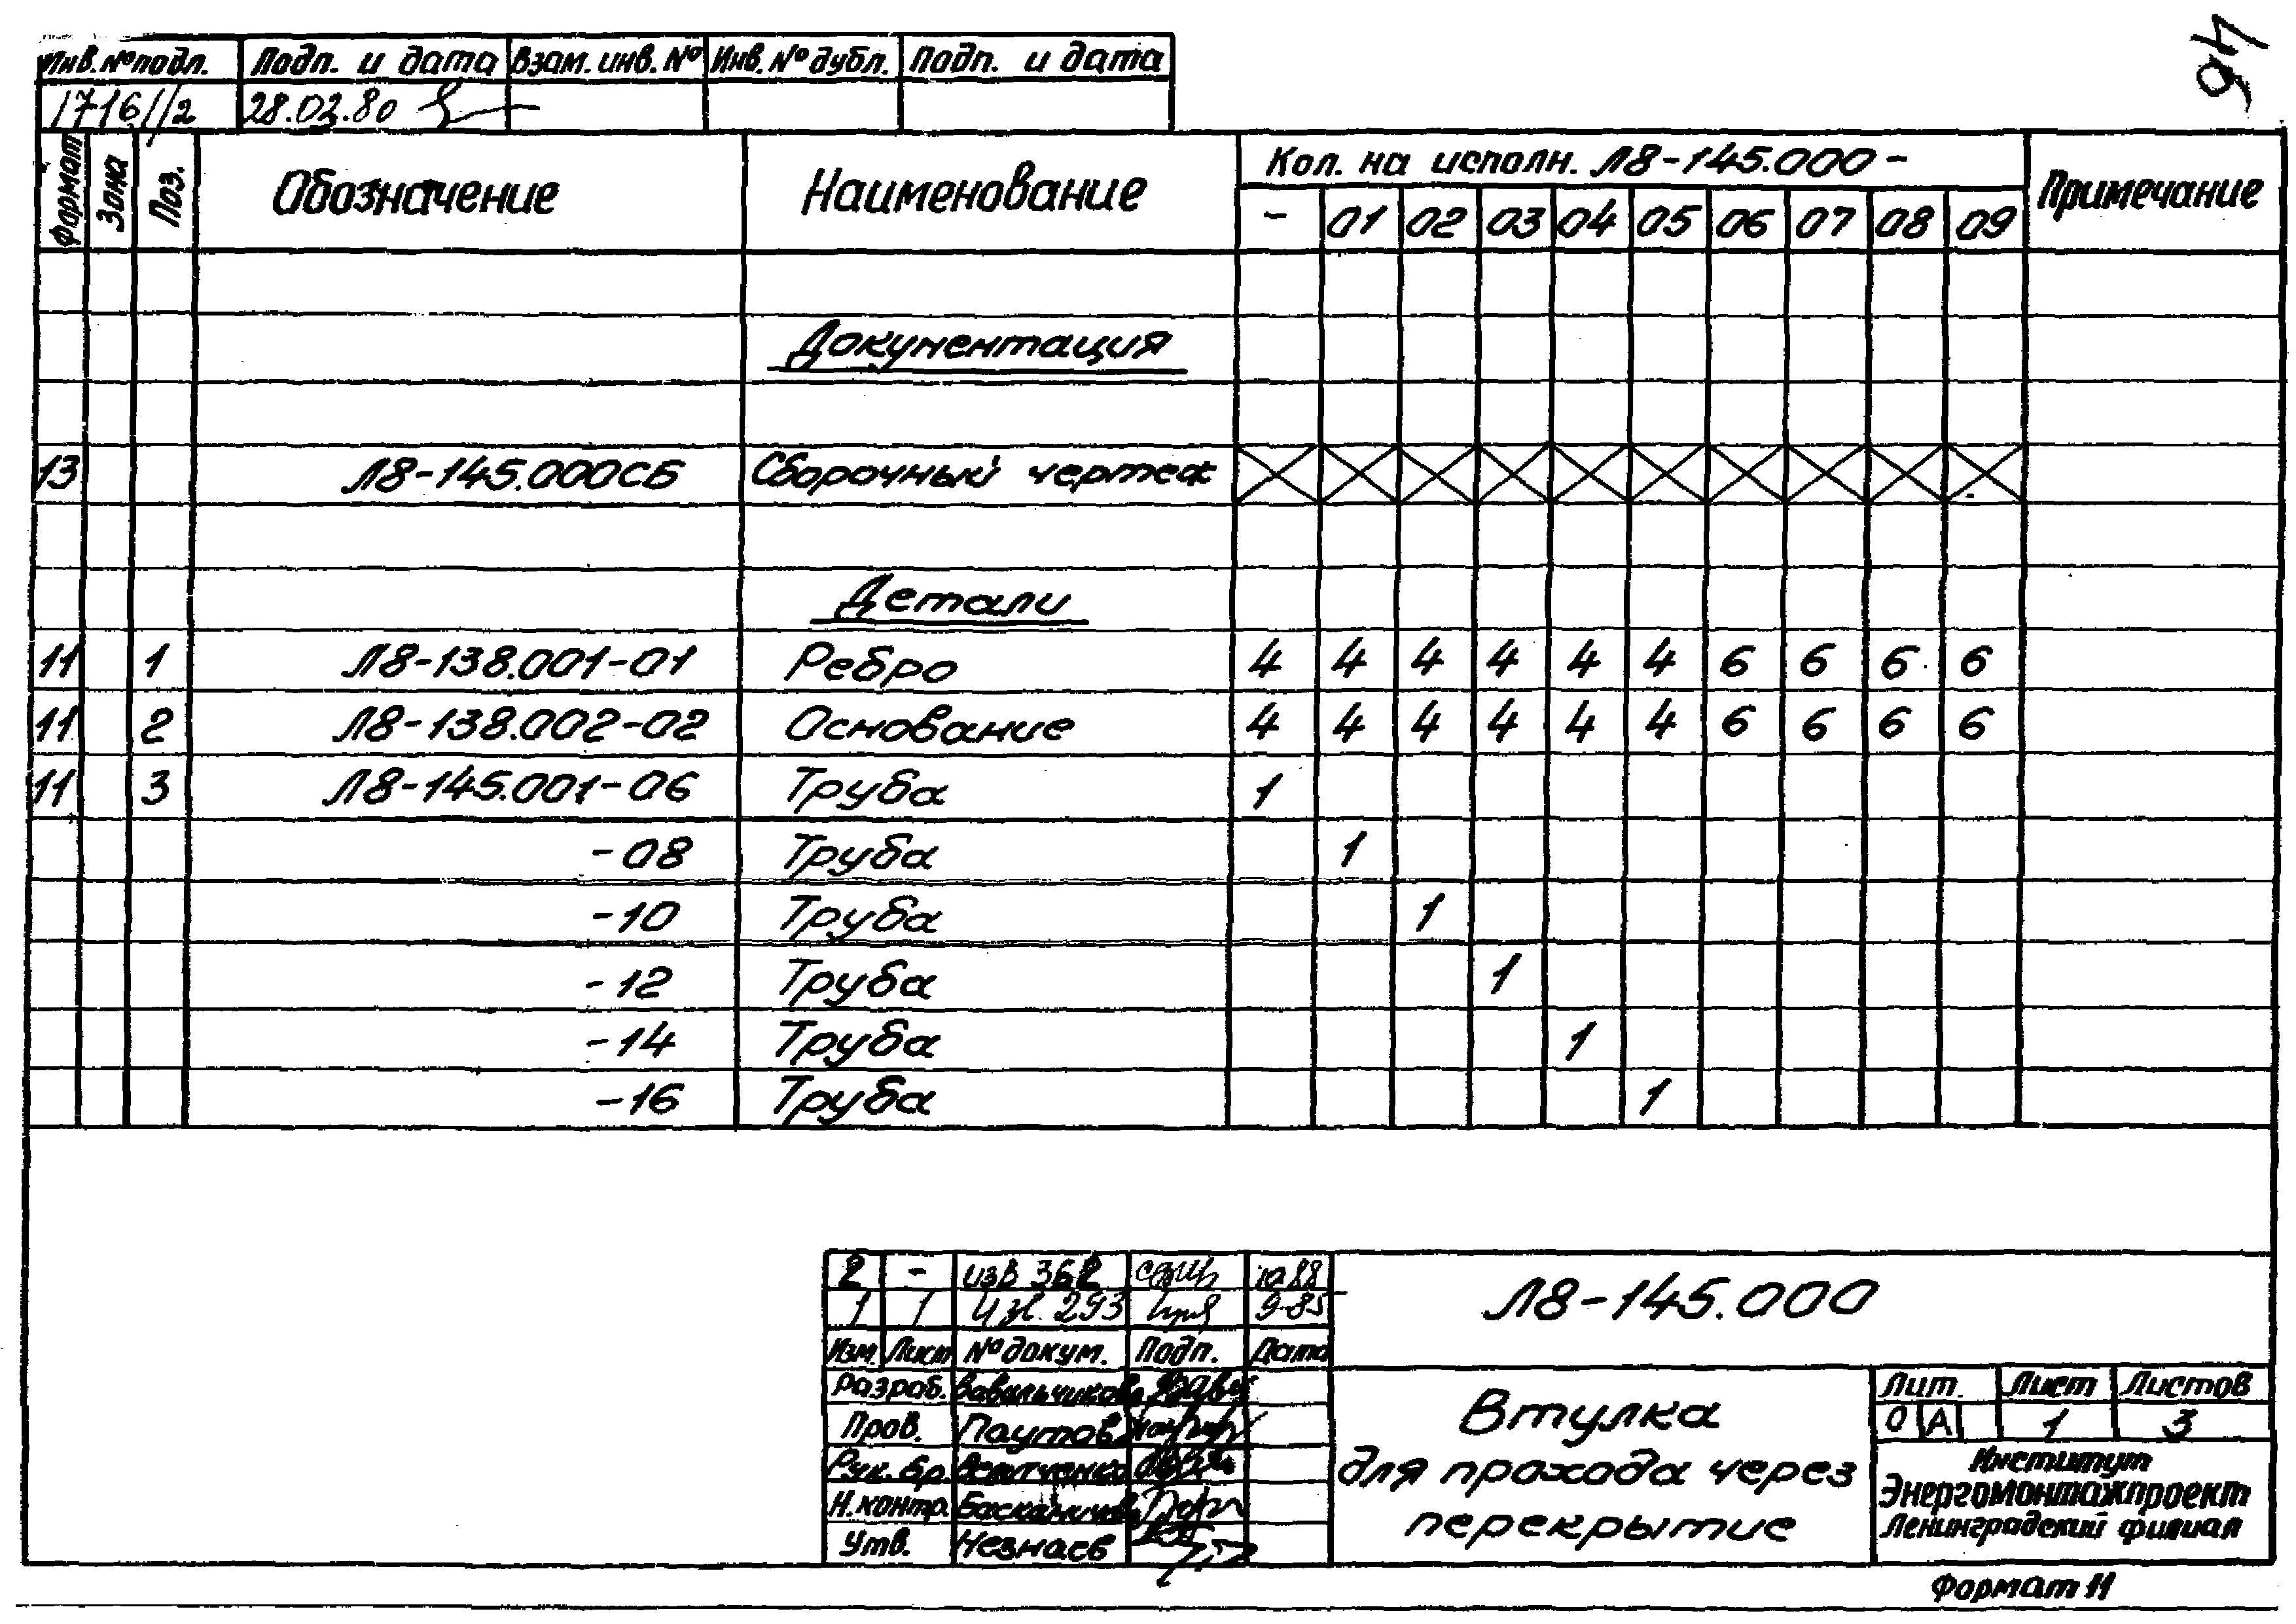 46
Инв. № подл. Подп. и дата Взам. инв. № Инв. № дубл. Подп. и дата
1716//2 28.02.80 –
Формат Зона Поз. Обозначение Наименование Кол. на исполн. Л8-145.000- Примечание
- 01 02 03 04 05 06 07 08 09
Документация
13 Л8-145.000СБ Сборочный чертеж
Детали
11 1 Л8-138.001-01 Ребро 4 4 4 4 4 4 6 6 6 6
11 2 Л8-138.002-02 Основание 4 4 4 4 4 4 6 6 6 6
11 3 Л8-145.001-06 Труба 1
-08 Труба 1
-10 Труба 1
-12 Труба 1
-14 Труба 1
-16 Труба 1
2 - изв 362 10.88
1 1 Изв. 293 9-85
Изм. Лист № докум. Подп. Дата
Л8-145.000
Разраб.
Пров. Паутов
Рук. бр.
Н. контр.
Утв. Незнаев
Втулка
для прохода через
перекрытие
Лит. Лист Листов
О А 1 3
Институт
Энергомонтажпроект
Ленинградский филиал
Формат 11